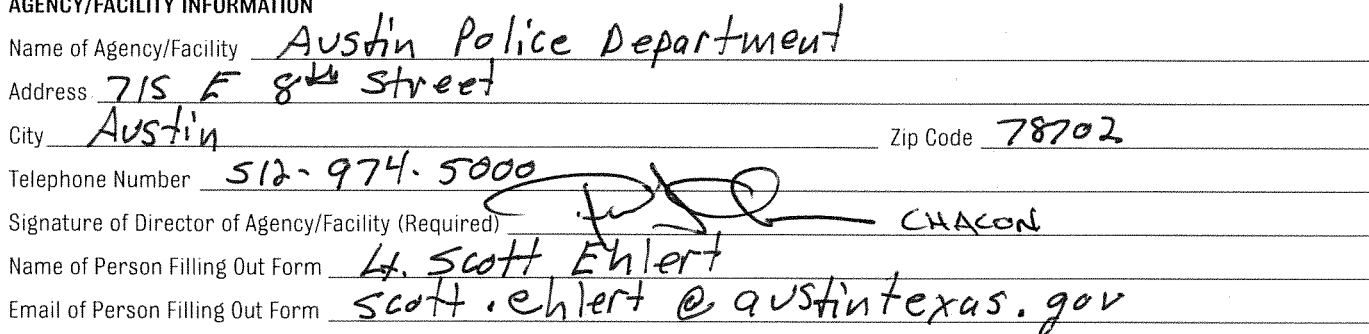 AGENCY/FACILITY INFORMATION
Name of Agency/Facility Austin Police Department
Address 715 E 8th Street
City Austin Zip Code 78702
Telephone Number 512-974-5000
Signature of Director of Agency/Facility (Required) CHACON
Name of Person Filling Out Form Lt. Scott Ehlert
Email of Person Filling Out Form scott.ehlert@austintexas.gov